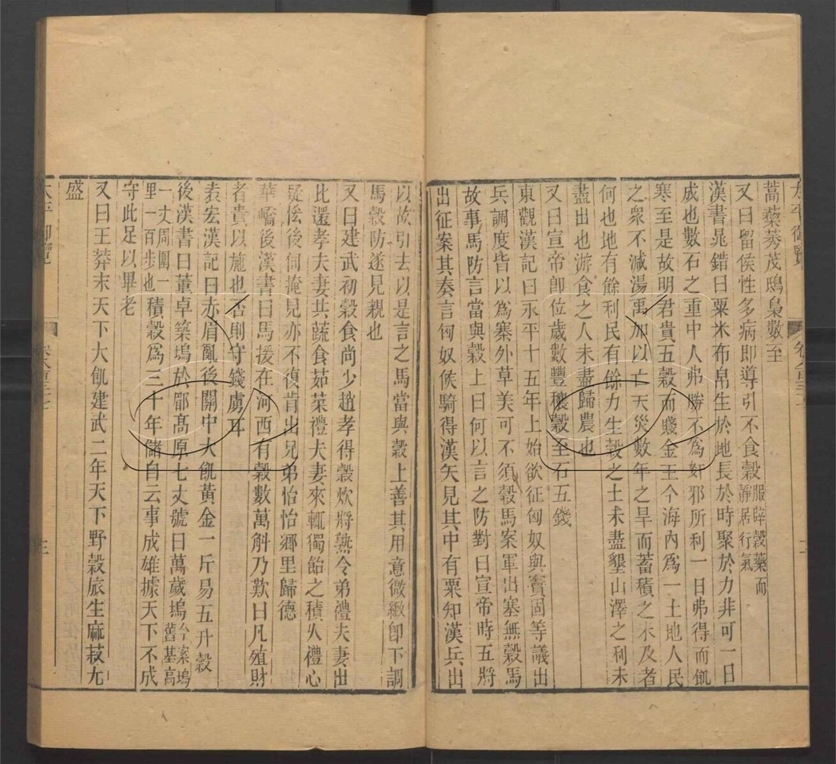 太平御覽 卷八百三十七 二
蒿藜莠茂鴟梟數至
又曰留侯性多病即導引不食穀服辟穀藥而靜居行氣
漢書晁錯曰粟米布帛生於地長於時聚於力非可一日
成也數石之重中人弗勝不為奸邪所利一日弗得而飢
寒至是故明君貴五穀而賤金玉今海內爲一土地人民
之衆不減湯禹加以亡天災數年之旱而蓄積之未及者
何也地有餘利民有餘力生穀之土未盡墾山澤之利未
盡出也游食之人未盡歸農也
又曰宣帝卽位歲數豐穰穀至石五錢
東觀漢記曰永平十五年上始欲征匈奴與竇固等議出
兵調度皆以爲塞外草美可不須穀馬案軍出塞無穀馬
故事馬防言當與穀上曰何以言之防對曰宣帝時五將
出征案其奏言匈奴候騎得漢矢見其中有粟知漢兵出
以故引去以是言之馬當與穀上善其用意微緻卽下調
馬穀防遂見親也
又曰建武初穀食尚少趙孝得穀炊將熟令弟禮夫妻出
比還孝夫妻共蔬食茹菜禮夫妻來輒獨飴之積久禮心
疑後伺掩見亦不復肯出兄弟怡怡鄉里歸德
華嶠後漢書曰馬援在河西有穀數萬斛乃歎曰凡殖財
者貴以施也否則守錢虜耳
袁宏漢記曰赤眉亂後關中大飢黃金一斤易五升穀
後漢書曰董卓築塢於郿高原七丈號曰萬歲塢今案塢舊基高
一丈周圍一里一百步也積穀爲三十年儲自云事成雄據天下不成
守此足以畢老
又曰王莽末天下大飢建武二年天下野穀旅生麻菽尤
盛
太平御覽 卷八百三十七 三